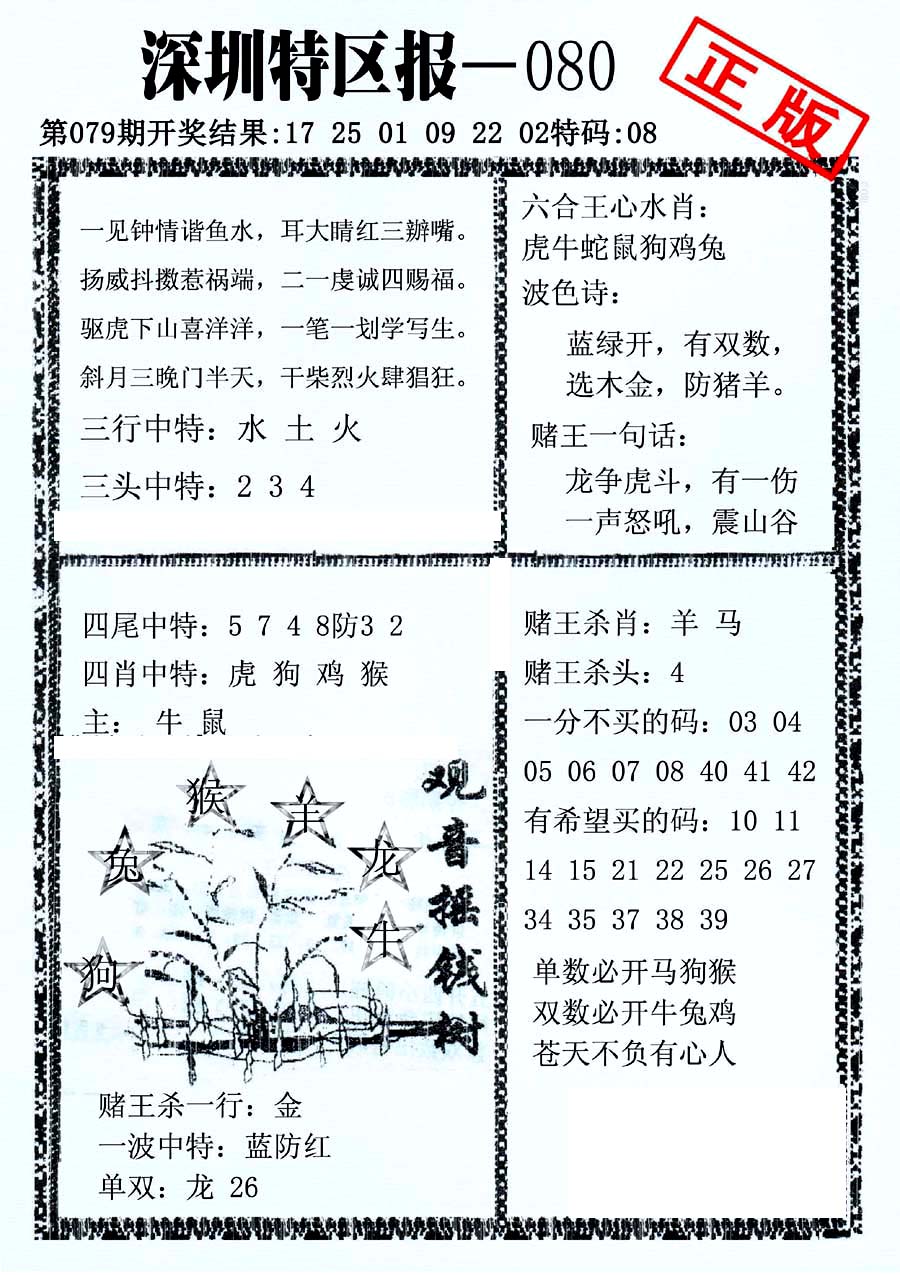 深圳特区报—080
正版
第079期开奖结果:17 25 01 09 22 02特码:08
一见钟情谐鱼水，耳大晴红三辧嘴。
扬威抖擞惹祸端，二一虔诚四赐福。
驱虎下山喜洋洋，一笔一划学写生。
斜月三晚门半天，干柴烈火肆猖狂。
三行中特：水 土 火
三头中特：2 3 4
六合王心水肖：
虎牛蛇鼠狗鸡兔
波色诗：
蓝绿开，有双数，
选木金，防猪羊。
赌王一句话：
龙争虎斗，有一伤
一声怒吼，震山谷
四尾中特：5 7 4 8防3 2
四肖中特：虎 狗 鸡 猴
主： 牛 鼠
猴
羊
兔
龙
牛
狗
观音摇钱树
赌王杀一行：金
一波中特：蓝防红
单双：龙 26
赌王杀肖：羊 马
赌王杀头：4
一分不买的码：03 04
05 06 07 08 40 41 42
有希望买的码：10 11
14 15 21 22 25 26 27
34 35 37 38 39
单数必开马狗猴
双数必开牛兔鸡
苍天不负有心人